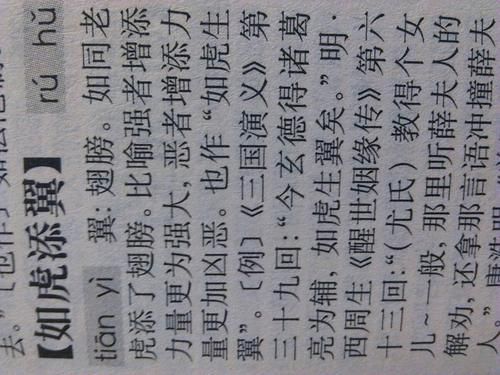 去。”〔也作〕“如法
【如虎添翼】 rú hǔ
tiān yì 翼：翅膀。如同老
虎添了翅膀。比喻强者增添
力量更为强大，恶者增添力
量更加凶恶。也作“如虎生
翼”。〔例〕《三国演义》第
三十九回：“今玄德得诸葛
亮为辅，如虎生翼矣。”明·
西周生《醒世姻缘传》第六
十三回：“（尤氏）教得个女
儿～一般，那里听薛夫人的
解劝，还拿那言语冲撞薛夫
人。”唐浩